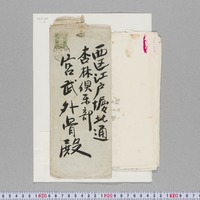 西区江戸堀北通
杏林倶楽部
宮武外骨殿